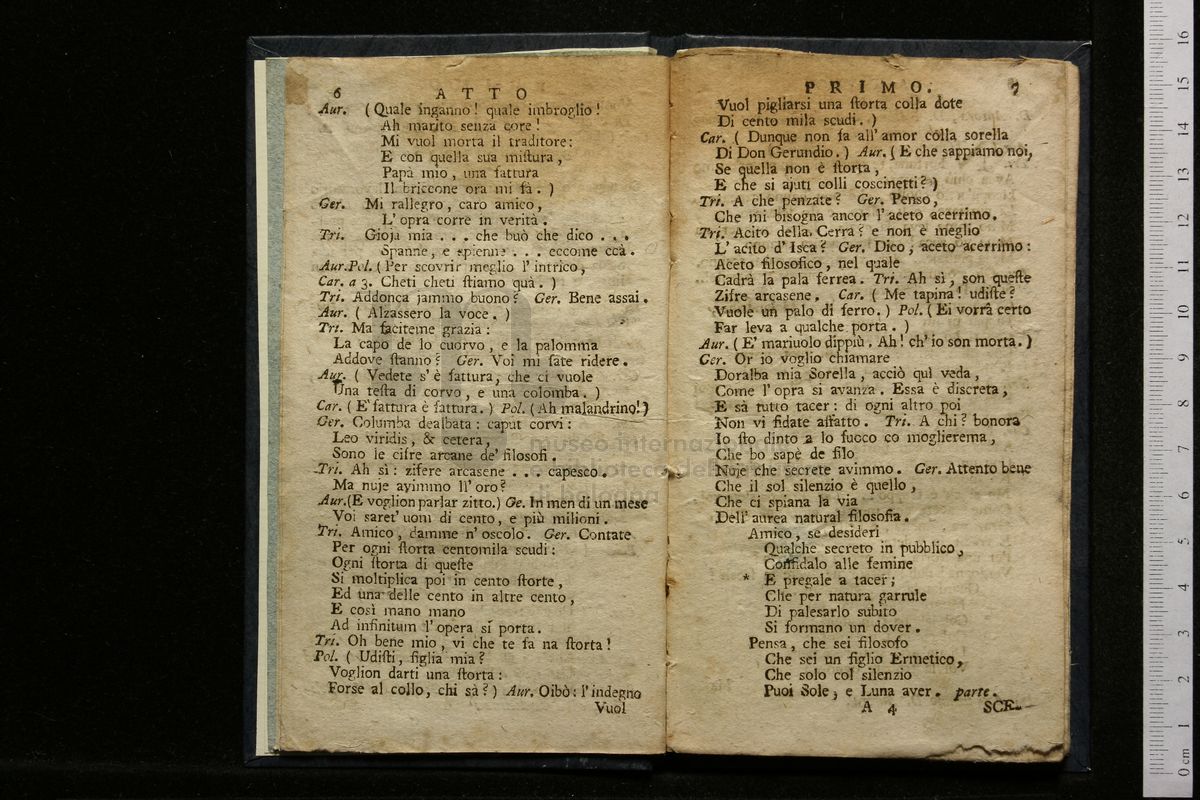 6 ATTO
Aur. (Quale inganno! quale imbroglio!
Ah marito senza core!
Mi vuol morta il traditore:
E con quella sua miſtura,
Papà mio, una fattura
Il briccone ora mi fa. )
Ger. Mi rallegro, caro amico,
L' opra corre in verità.
Tri. Gioja mia . . . che buò che dico . . .
Spanne, e spienne . . . eccome ccà.
Aur.Pol. (Per scovrir meglio l' intrico,
Car. a 3. Cheti cheti ſtiamo quà. )
Tri. Addonca jammo buono? Ger. Bene assai.
Aur. ( Alzassero la voce. )
Tri. Ma faciteme grazia:
La capo de lo cuorvo, e la palomma
Addove ſtanno? Ger. Voi mi fate ridere.
Aur. ( Vedete s' è fattura, che ci vuole
Una teſta di corvo, e una colomba. )
Car. ( E' fattura è fattura. ) Pol. (Ah malandrino!)
Ger. Columba dealbata: caput corvi:
Leo viridis, & cetera,
Sono le cifre arcane de' filosofi.
Tri. Ah sì: zifere arcasene . . . capesco.
Ma nuje avimmo ll' oro?
Aur.(E voglion parlar zitto.) Ge. In men di un mese
Voi saret' uom di cento, e più milioni.
Tri. Amico, damme n' oscolo. Ger. Contate
Per ogni ſtorta centomila scudi:
Ogni ſtorta di queſte
Si moltiplica poi in cento ſtorte,
Ed una delle cento in altre cento,
E così mano mano
Ad infinitum l' opera si porta.
Tri. Oh bene mio, vi che te fa na ſtorta!
Pol. ( Udiſti, figlia mia?
Voglion darti una ſtorta:
Forse al collo, chi sà? ) Aur. Oibò: l' indegno
Vuol
PRIMO. 7
Vuol pigliarsi una ſtorta colla dote
Di cento mila scudi. )
Car. ( Dunque non fa all' amor colla sorella
Di Don Gerundio. ) Aur. ( E che sappiamo noi,
Se quella non è ſtorta,
E che si ajuti colli coscinetti? )
Tri. A che penzate? Ger. Penso,
Che mi bisogna ancor l' aceto acerrimo.
Tri. Acito della Cerra? e non è meglio
L' acito d' Isca? Ger. Dico, aceto acerrimo:
Aceto filosofico, nel quale
Cadrà la pala ferrea. Tri. Ah sì, son queſte
Zifre arcasene. Car. ( Me tapina! udiſte?
Vuole un palo di ferro. ) Pol. ( Ei vorrà certo
Far leva a qualche porta. )
Aur. ( E' mariuolo dippiù. Ah! ch' io son morta. )
Ger. Or io voglio chiamare
Doralba mia Sorella, acciò quì veda,
Come l' opra si avanza. Essa è discreta,
E sà tutto tacer: di ogni altro poi
Non vi fidate affatto. Tri. A chi? bonora
Io ſto dinto a lo fuoco co moglierema,
Che bo sapè de filo
Nuje che secrete avimmo. Ger. Attento bene
Che il sol silenzio è quello,
Che ci spiana la via
Dell' aurea natural filosofia.
Amico, se desideri
Qualche secreto in pubblico,
Confidalo alle femine
* E pregale a tacer;
Che per natura garrule
Di palesarlo subito
Si formano un dover.
Pensa, che sei filosofo
Che sei un figlio Ermetico,
Che solo col silenzio
Puoi Sole, e Luna aver. parte.
A 4 SCE-